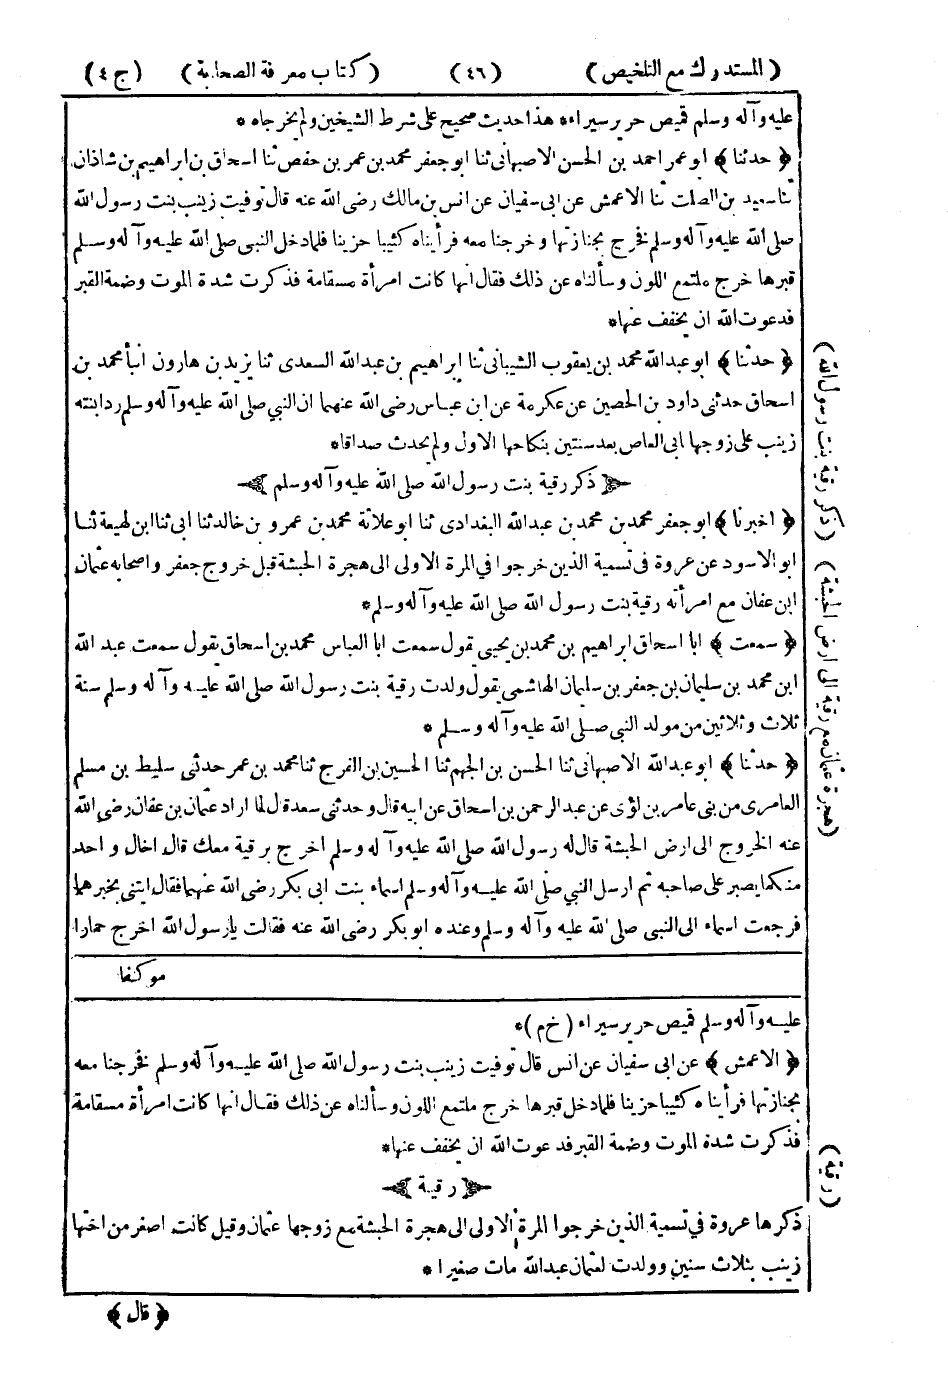 (المستدرك مع التلخيص) (٤٦) (كتاب معرفة الصحابة) (ج ٤)
عليه وآله وسلم قميص حرير سيراء * هذا حديث صحيح على شرط الشيخين ولم يخرجاه *
﴿ حدثنا ﴾ ابو عمر احمد بن الحسن الاصبهانى ثنا ابو جعفر محمد بن عمر بن حفص ثنا اسحاق بن ابراهيم بن شاذان
ثنا سعيد بن الصلت ثنا الاعمش عن ابى سفيان عن انس بن مالك رضى الله عنه قال توفيت زينب بنت رسول الله
صلى الله عليه وآله وسلم فخرج بجنازتها وخرجنا معه فرأيناه كئيبا حزينا فلما دخل النبى صلى الله عليه وآله وسلم
قبرها خرج ملتمع اللون وسألناه عن ذلك فقال انها كانت امرأة مسقامة فذكرت شدة الموت وضمة القبر
فدعوت الله ان يخفف عنها *
﴿ حدثنا ﴾ ابو عبدالله محمد بن يعقوب الشيبانى ثنا ابراهيم بن عبدالله السعدى ثنا يزيد بن هارون انبأ محمد بن
اسحاق حدثنى داود بن الحصين عن عكرمة عن ابن عباس رضى الله عنهما ان النبي صلى الله عليه وآله وسلم رد ابنته
زينب على زوجها ابى العاص بعد سنتين بنكاحها الاول ولم يحدث صداقا *
﴿ ذكر رقية بنت رسول الله صلى الله عليه وآله وسلم ﴾
﴿ اخبرنا ﴾ ابو جعفر محمد بن محمد بن عبدالله البغدادى ثنا ابو علاثة محمد بن عمرو بن خالد ثنا ابى ثنا ابن لهيعة ثنا
ابو الاسود عن عروة فى تسمية الذين خرجوا في المرة الاولى الى هجرة الحبشة قبل خروج جعفر واصحابه عثمان
ابن عفان مع امرأته رقية بنت رسول الله صلى الله عليه وآله وسلم *
﴿ سمعت ﴾ ابا اسحاق ابراهيم بن محمد بن يحيى يقول سمعت ابا العباس محمد بن اسحاق يقول سمعت عبد الله
ابن محمد بن سليمان بن جعفر بن سليمان الهاشمى يقول ولدت رقية بنت رسول الله صلى الله عليه وآله وسلم سنة
ثلاث وثلاثين من مولد النبى صلى الله عليه وآله وسلم *
﴿ حدثنا ﴾ ابو عبدالله الاصبهانى ثنا الحسن بن الجهم ثنا الحسين بن الفرج ثنا محمد بن عمر حدثنى سليط بن مسلم
العامرى من بنى عامر بن لؤى عن عبدالرحمن بن اسحاق عن ابيه قال وحدثنى سعدة قال لما اراد عثمان بن عفان رضى الله
عنه الخروج الى ارض الحبشة قال له رسول الله صلى الله عليه وآله وسلم اخرج برقية معك قال اخال واحد
منكما يصبر على صاحبه ثم ارسل النبي صلى الله عليه وآله وسلم اسماء بنت ابى بكر رضى الله عنهما فقال ائتنى بخبرهما
فرجعت اسماء الى النبى صلى الله عليه وآله وسلم وعنده ابو بكر رضى الله عنه فقالت يا رسول الله اخرج حمارا
موكفا
عليه وآله وسلم قميص حرير سيراء (خ م) *
﴿ الاعمش ﴾ عن ابى سفيان عن انس قال توفيت زينب بنت رسول الله صلى الله عليه وآله وسلم فخرجنا معه
بجنازتها فرأيناه كئيبا حزينا فلما دخل قبرها خرج ملتمع اللون وسألناه عن ذلك فقال انها كانت امرأة مسقامة
فذكرت شدة الموت وضمة القبر فدعوت الله ان يخفف عنها *
﴿ رقية ﴾
ذكرها عروة فى تسمية الذين خرجوا المرة الاولى الى هجرة الحبشة مع زوجها عثمان وقيل كانت اصغر من اختها
زينب بثلاث سنين وولدت لعثمان عبدالله مات صغيرا *
﴿ قال ﴾
(ذكر رقية بنت رسول الله)
(هجرة عثمان مع رقية الى ارض الحبشة)
(رقية)